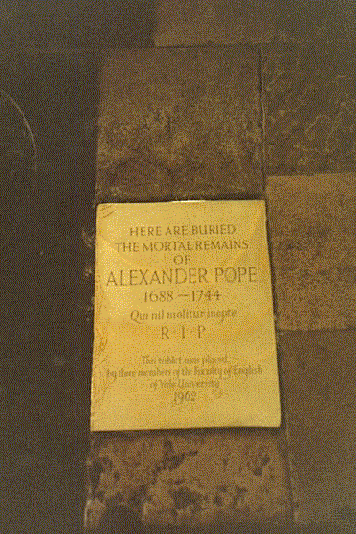 HERE ARE BURIED
THE MORTAL REMAINS
OF
ALEXANDER POPE
1688 – 1744
Qui nil molitur inepte
R · I · P
This tablet was placed
by three members of the Faculty of English
of Yale University
1962